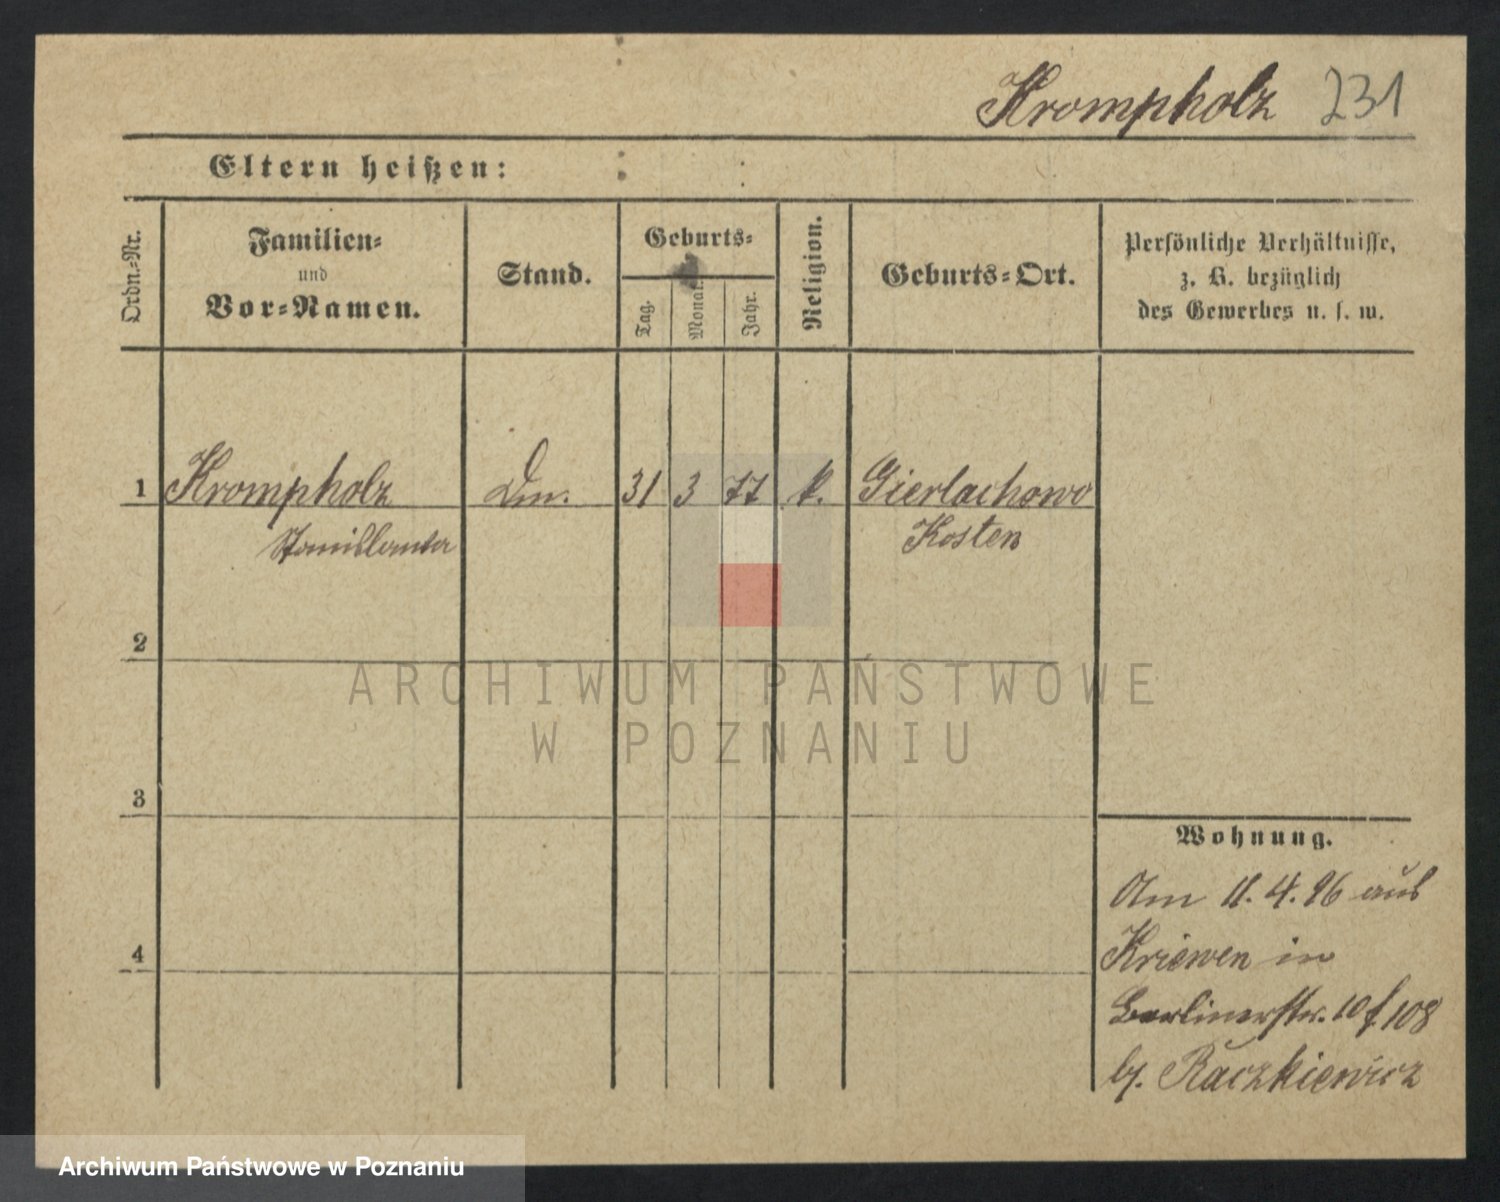 Krompholz 231
Eltern heißen:
Ordn.-Nr.
Familien-
und
Vor-Namen.
Stand.
Geburts-
Tag.
Monat.
Jahr.
Religion.
Geburts-Ort.
Persönliche Verhältnisse,
z. B. bezüglich
des Gewerbes u. s. w.
1 Krompholz Dm. 31 3 77 k. Gierlachowo
Stanislawa Kosten
2
3
4
Wohnung.
Am 11.4.96 aus
Kriewen in
Berlinerstr. 10 f. 108
by. Raczkiewicz
ARCHIWUM PAŃSTWOWE
W POZNANIU
Archiwum Państwowe w Poznaniu